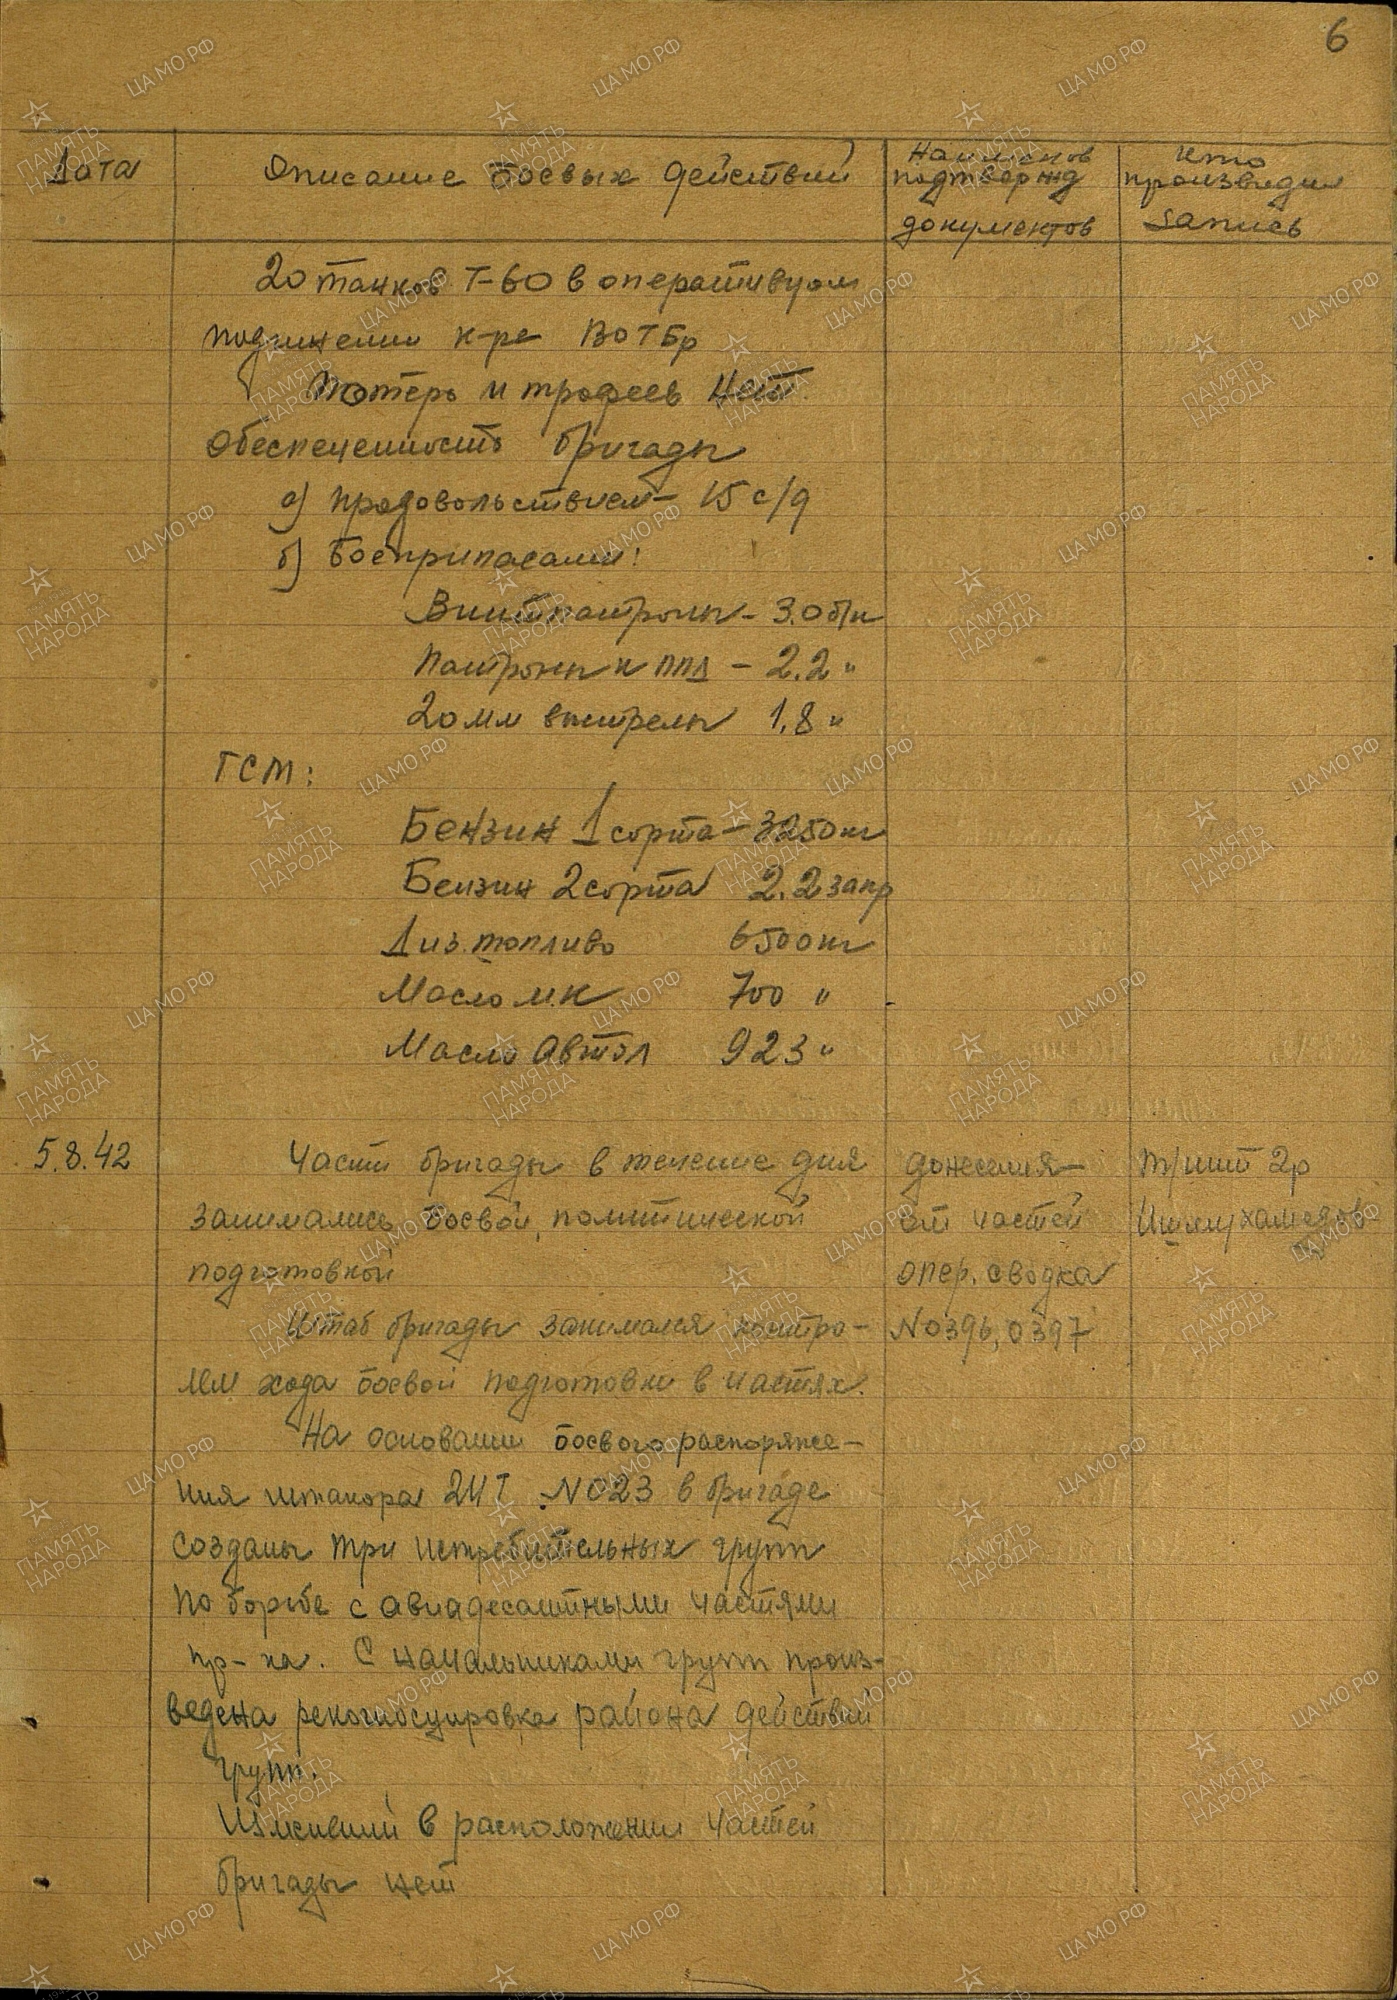 6
Дата
Описание боевых действий
Наименов
подтвержд
документов
Кто
производил
запись
20 танков Т-60 в оперативном
подчинении к-ра ВОТБр
Потерь и трофеев нет.
Обеспеченность бригады
а) продовольствием - 15 с/д
б) боеприпасами:
Винтпатроны - 3.0 б/к
Патроны к ППД - 2.2 "
20 мм выстрелы 1,8 "
ГСМ:
Бензин 1 сорта - 3250 кг
Бензин 2 сорта 2.2 запр
Диз. топливо 6500 кг
Масло МК 700 "
Масло Автол 923 "
5.8.42
Части бригады в течение дня
занимались боевой, политической
подготовкой
Штаб бригады занимался контро-
лем хода боевой подготовки в частях.
На основании боевого распоряже-
ния штакора 24Т №023 в бригаде
созданы три истребительных групп
по борьбе с авиадесантными частями
пр-ка. С начальниками групп произ-
ведена рекогносцировка района действий
групп.
Изменений в расположении частей
бригады нет
донесения
от частей
опер. сводка
№0396, 0397
Т/инт 2р
Ишмухамедов
ПАМЯТЬ
НАРОДА
ЦА МО РФ